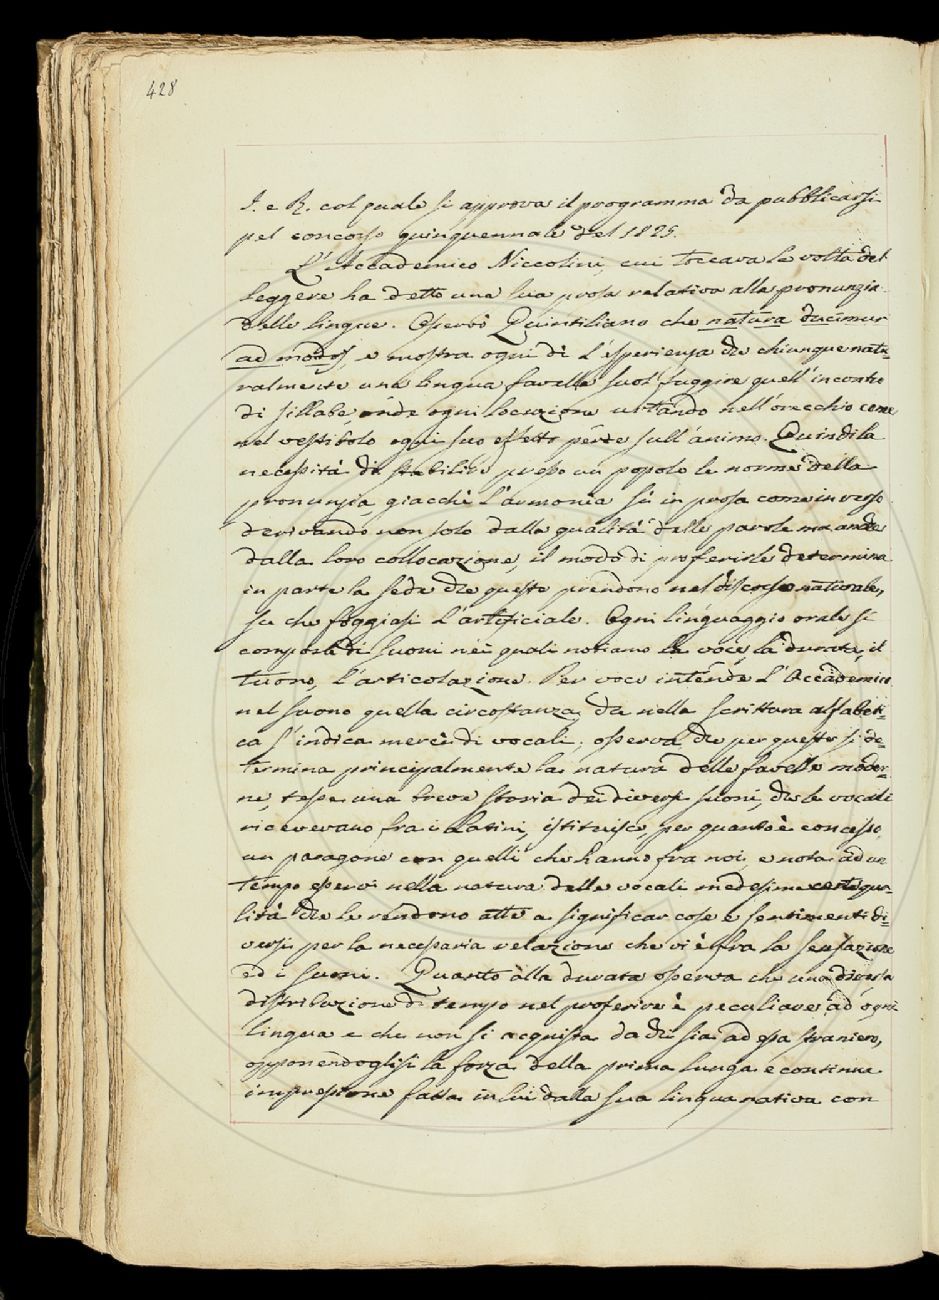 428
I. e R. col quale si approva il programma da pubblicarsi
pel concorso quinquennale del 1825.
L'Accademico Niccolini, cui toccava la volta del
leggere ha detto una sua prosa relativa alla pronunzia
delle lingue. Osservò Quintiliano che natura ducimur
ad modos, e mostra ogni dì l'esperienza che chiunque natu=
ralmente una lingua favella suol fuggire quell'incontro
di sillabe, onde ogni locuzione urtando nell'orecchio come
nel vestibolo ogni suo effetto perde sull'animo. Quindi la
necessità di stabilire presso un popolo le norme della
pronunzia, giacchè l'armonia sì in prosa come in verso
derivando non solo dalla qualità delle parole ma anche
dalla loro collocazione, il modo di proferirle determina
in parte la sede che queste prendono nel discorso naturale,
su che foggiasi l'artificiale. Ogni linguaggio orale si
compone di suoni nei quali notiamo la voce, la durata, il
tuono, l'articolazione. Per voce intende l'Accademico
nel suono quella circostanza, che nella scrittura alfabeti=
ca s'indica mercè di vocali; osserva che per queste si de=
termina principalmente la natura delle favelle moder=
ne, tesse una breve storia dei diversi suoni, che le vocali
ricevevano fra i Latini, istituisce, per quanto è concesso,
un paragone con quelli che hanno fra noi, e nota ad un
tempo esservi nella natura delle vocali medesime certe qua=
lità che le rendono atte a significar cose e sentimenti di=
versi per la necessaria relazione che vi è fra la sensazione
ed i suoni. Quanto alla durata osserva che una diversa
distribuzione di tempo nel proferire è peculiare ad ogni
lingua e che non si acquista da chi sia ad essa straniero,
opponendoglisi la forza della prima lunga e continua
impressione fatta in lui dalla sua lingua nativa con